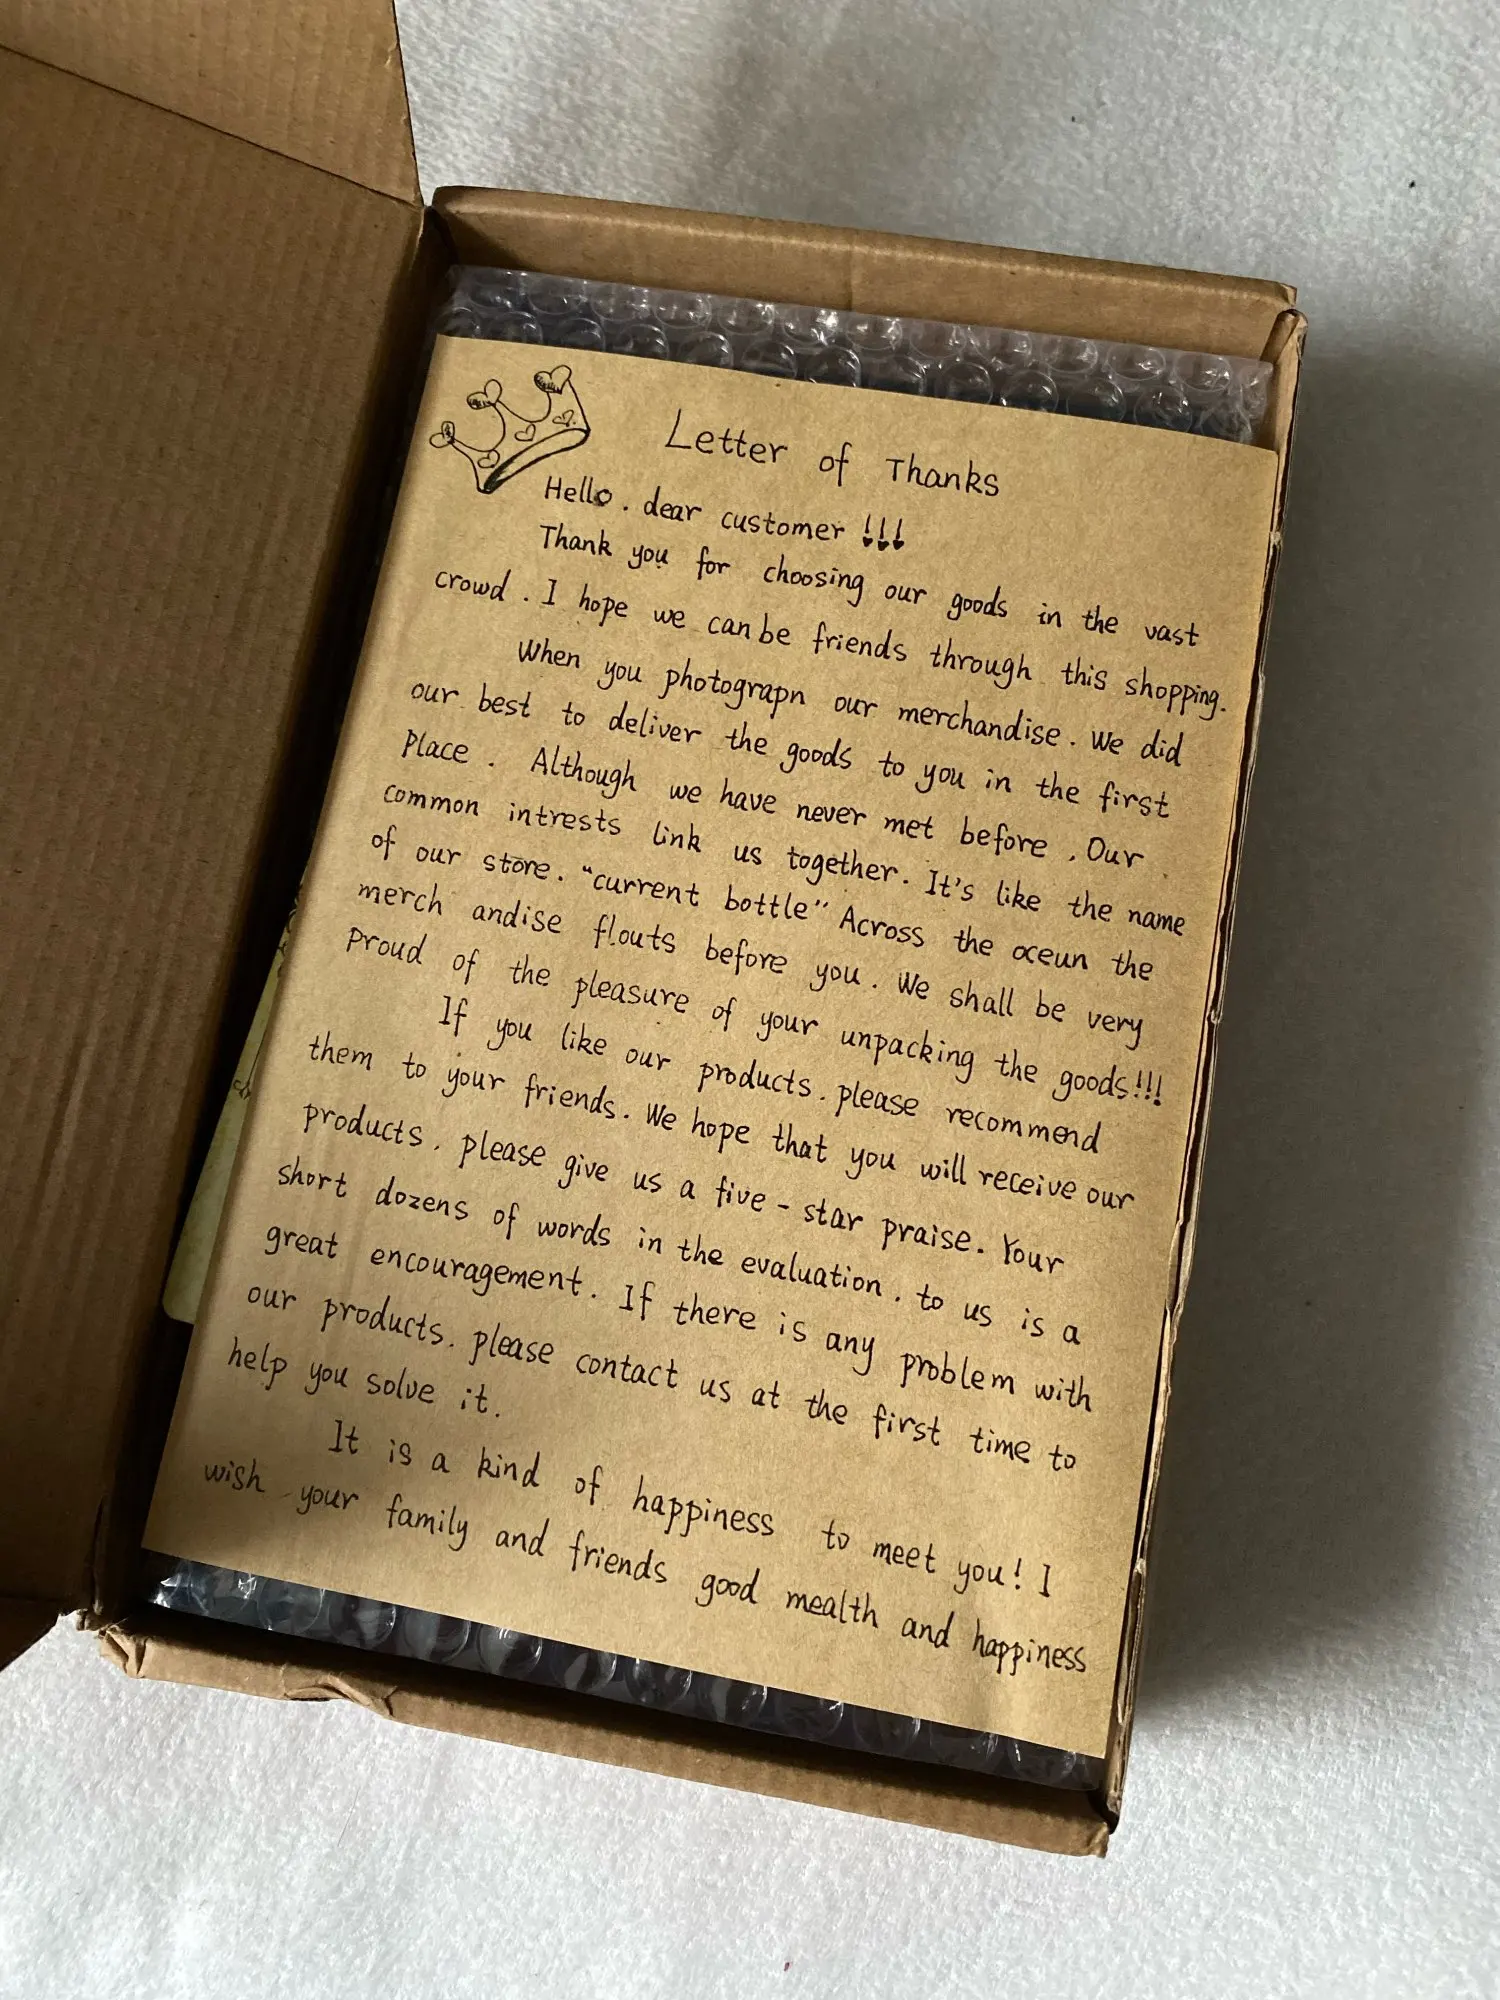 Letter of Thanks
Hello. dear customer !!!
Thank you for choosing our goods in the vast
crowd. I hope we can be friends through this shopping.
When you photograpn our merchandise. We did
our best to deliver the goods to you in the first
place. Although we have never met before. Our
common intrests link us together. It's like the name
of our store. "current bottle" Across the oceun the
merch andise flouts before you. We shall be very
proud of the pleasure of your unpacking the goods!!!
If you like our products. please recommend
them to your friends. We hope that you will receive our
products. please give us a five-star praise. Your
short dozens of words in the evaluation. to us is a
great encouragement. If there is any problem with
our products. please contact us at the first time to
help you solve it.
It is a kind of happiness to meet you! I
wish your family and friends good mealth and happiness